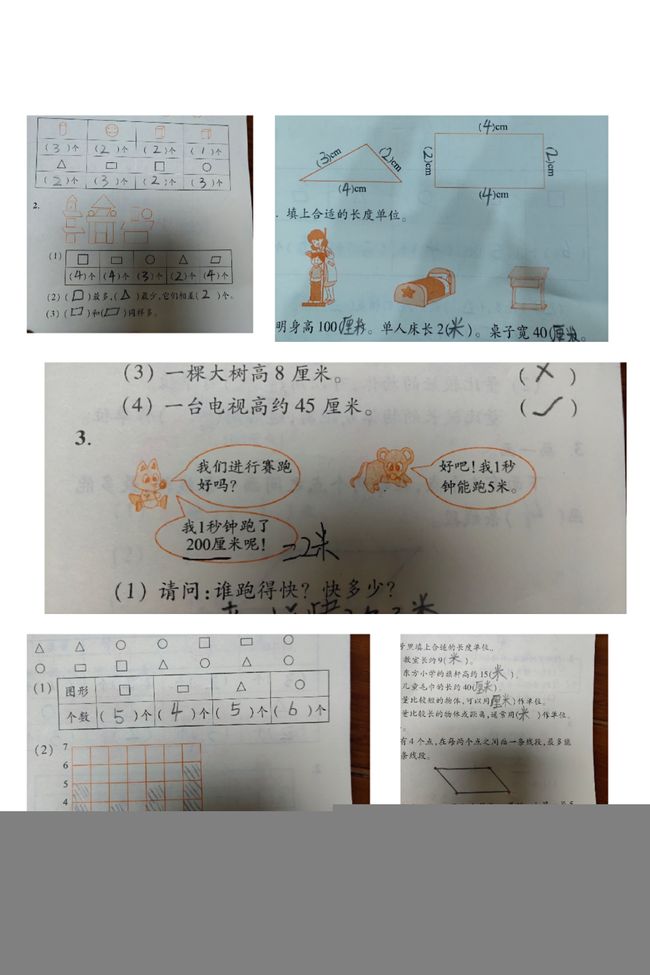 (3)个 (2)个 (2)个 (1)个
(2)个 (3)个 (2)个 (3)个
2.
(1)
(4)个 (4)个 (3)个 (2)个 (4)个
(2) ( )最多,( )最少,它们相差(2)个。
(3) ( )和( )同样多。
(4)cm
(3)cm (2)cm (2)cm (2)cm
(4)cm (4)cm
. 填上合适的长度单位。
明身高 100(厘米。 单人床长 2(米)。 桌子宽 40(厘米。
(3) 一棵大树高 8 厘米。 (×)
(4) 一台电视高约 45 厘米。 (✓)
3.
我们进行赛跑
好吗?
好吧!我1秒
钟能跑5米。
我1秒钟跑了
200厘米呢! 2米
(1) 请问:谁跑得快? 快多少?
(1) 图形
个数 (5)个 (4)个 (5)个 (6)个
(2) 7
6
5
4
里填上合适的长度单位。
教室长约9(米)。
东方小学的旗杆高约15(米)。
儿童毛巾的长约40(厘米)。
量比较短的物体,可以用(厘米)作单位。
量比较长的物体或距离,通常用(米)作单位。
有4个点,在每两个点之间画一条线段,最多能
条线段。